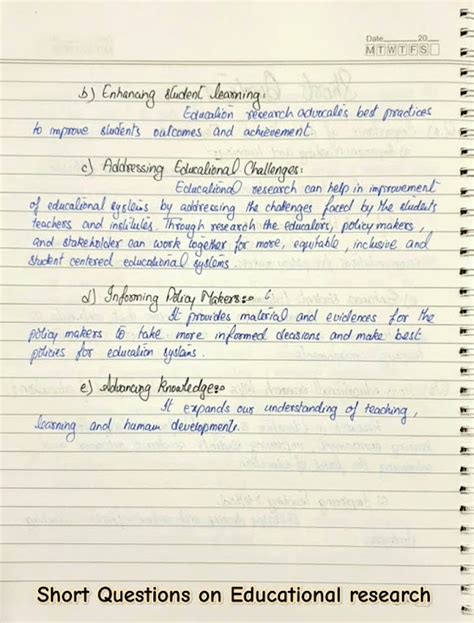 Date 20
M T W T F S
b) Enhancing student learning:
Education research advocates best practices
to improve students outcomes and achievement.
c) Addressing Educational Challenges:
Educational research can help in improvement
of educational systems by addressing the challenges faced by the students
teachers and institutes. Through research the educators, policy makers,
and stakeholder can work together for more, equitable, inclusive and
student centered educational systems.
d) Informing Policy Makers:-
It provides material and evidences for the
policy makers to take more informed decisions and make best
policies for education systems.
e) Advancing Knowledge:-
It expands our understanding of teaching,
learning and human developments.
Short Questions on Educational research